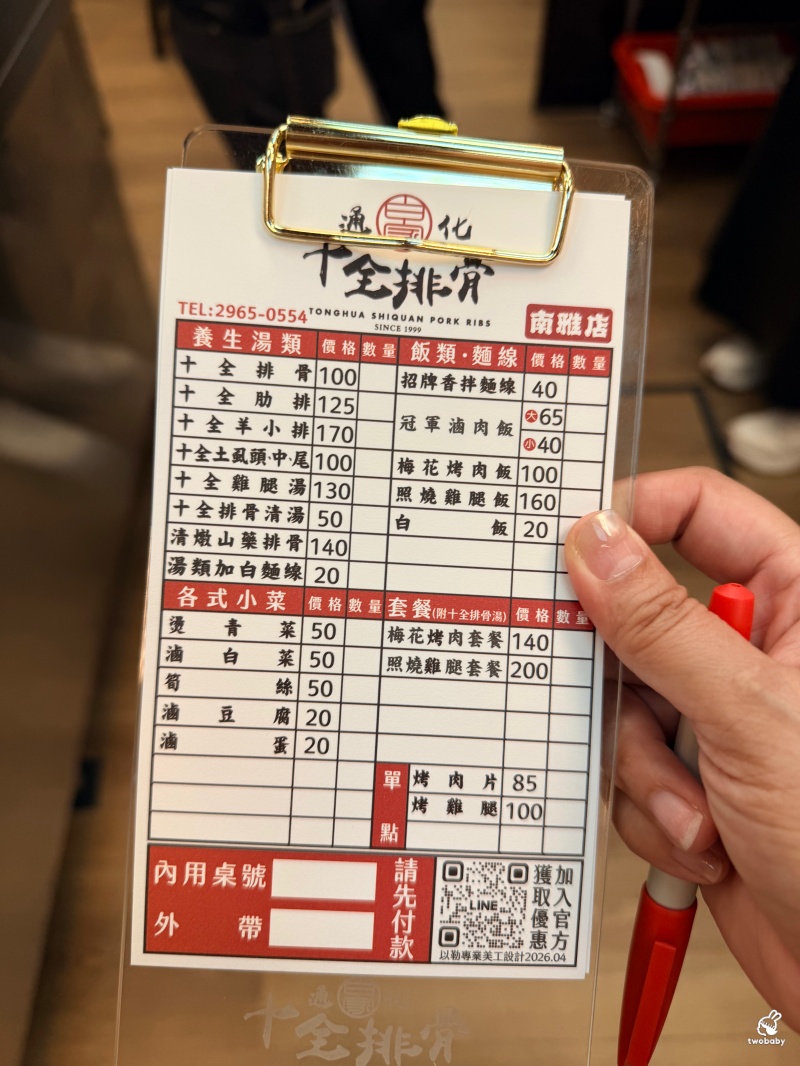 通 化
十全排骨
TONGHUA SHIQUAN PORK RIBS
SINCE 1999
TEL:2965-0554
南雅店
養生湯類 價格 數量
十全排骨 100
十全肋排 125
十全羊小排 170
十全土虱頭·中·尾 100
十全雞腿湯 130
十全排骨清湯 50
清燉山藥排骨 140
湯類加白麵線 20
飯類·麵線 價格 數量
招牌香拌麵線 40
冠軍滷肉飯 大65
小40
梅花烤肉飯 100
照燒雞腿飯 160
白飯 20
各式小菜 價格 數量
燙青菜 50
滷白菜 50
筍絲 50
滷豆腐 20
滷蛋 20
套餐(附十全排骨湯) 價格 數量
梅花烤肉套餐 140
照燒雞腿套餐 200
單點
烤肉片 85
烤雞腿 100
內用桌號
外帶
請先付款
LINE
加入官方
獲取優惠
以勒專業美工設計2026.04
通 化
十全排骨
twobaby